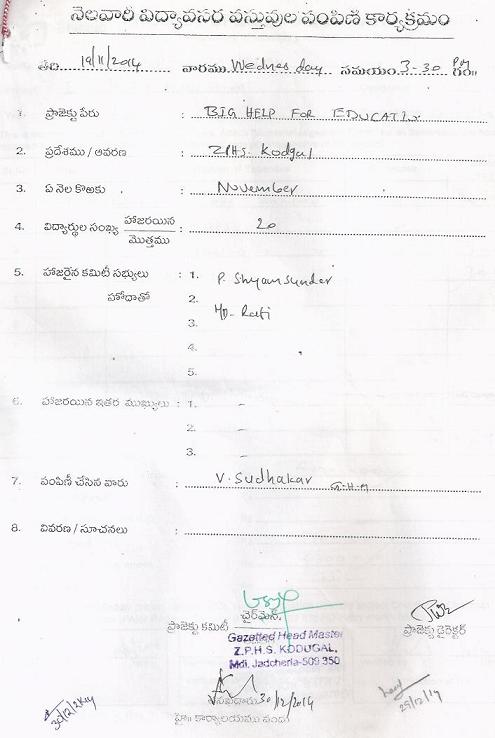 నెలవారీ విద్యావసర వస్తువుల పంపిణి కార్యక్రమం
తేది 19/11/2014 వారము Wednesday సమయం 3-30 PM గం॥
1. ప్రాజెక్టు పేరు : BIG HELP FOR EDUCATION
2. ప్రదేశము / ఆవరణ : ZPHS. Kodgal
3. ఏ నెల కొఱకు : November
4. విద్యార్థుల సంఖ్య హాజరయిన : 20
మొత్తము
5. హాజరైన కమిటీ సభ్యులు : 1. P. Shyamsunder
హోదాతో 2.
3. MD- Rafi
4.
5.
6. హాజరయిన ఇతర ముఖ్యులు : 1. -
2. -
3. -
7. పంపిణీ చేసిన వారు : V. Sudhakar G.H.M
8. వివరణ / సూచనలు :
ప్రాజెక్టు కమిటీ చైర్మెన్,
ప్రాజెక్టు డైరెక్టర్
Gazetted Head Master
Z.P.H.S. KODUGAL,
Mdl. Jadcherla-509 350
30/12/2014
30/12/2014
29/12/14
హె॥ కార్యాలయము నందు